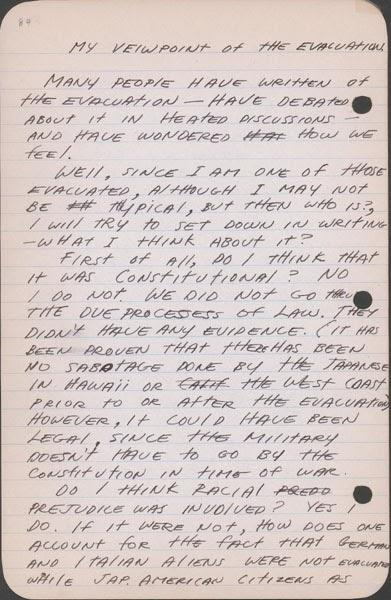 89
MY VEIWPOINT OF THE EVACUATION
MANY PEOPLE HAVE WRITTEN OF
THE EVACUATION — HAVE DEBATED
ABOUT IT IN HEATED DISCUSSIONS —
AND HAVE WONDERED HOW WE
FEEL.
WELL, SINCE I AM ONE OF THOSE
EVACUATED, ALTHOUGH I MAY NOT
BE TYPICAL, BUT THEN WHO IS?,
I WILL TRY TO SET DOWN IN WRITING
—WHAT I THINK ABOUT IT?
FIRST OF ALL, DO I THINK THAT
IT WAS CONSTITUTIONAL? NO
I DO NOT. WE DID NOT GO THRU
THE DUE PROCESSESS OF LAW. THEY
DIDN'T HAVE ANY EVIDENCE. (IT HAS
BEEN PROVEN THAT THERE HAS BEEN
NO SABOTAGE DONE BY THE JAPANESE
IN HAWAII OR CALIF THE WEST COAST
PRIOR TO OR AFTER THE EVACUATION)
HOWEVER, IT COULD HAVE BEEN
LEGAL, SINCE THE MILITARY
DOESN'T HAVE TO GO BY THE
CONSTITUTION IN TIME OF WAR.
DO I THINK RACIAL
PREJUDICE WAS INVOLVED? YES I
DO. IF IT WERE NOT, HOW DOES ONE
ACCOUNT FOR THE FACT THAT GERMAN
AND ITALIAN ALIENS WERE NOT EVACUATED
WHILE JAP. AMERICAN CITIZENS AS